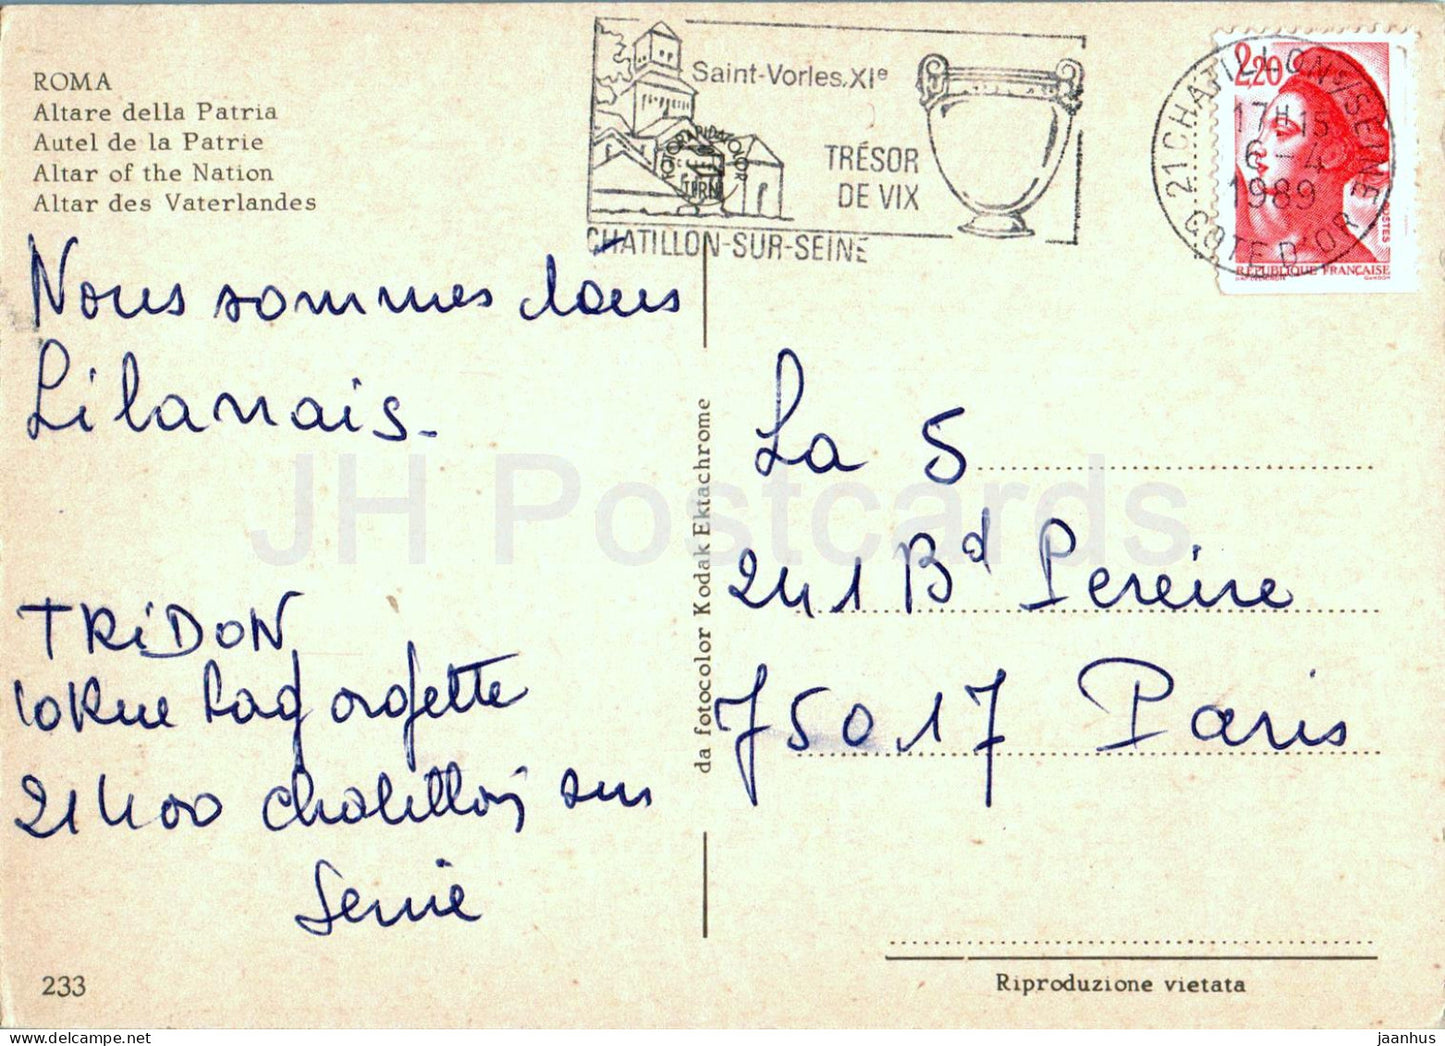 ROMA
Altare della Patria
Autel de la Patrie
Altar of the Nation
Altar des Vaterlandes
Saint-Vorles.XIe
TRÉSOR
DE VIX
CHATILLON-SUR-SEINE
FOTORAPIDACOLOR
TERNI
2,20
21 CHATILLON S/SEINE
17H15
6-4
1989
COTE D'OR
POSTES
RÉPUBLIQUE FRANÇAISE
GANDON
Nous sommes dans
Lilanais.
TRiDON
10 Rue Lagorgette
21400 Chatillon sur
Seine
La 5
241 Bd Pereire
75017 Paris
da fotocolor Kodak Ektachrome
JH Postcards
233
Riproduzione vietata
delcampe.net
jaanhus